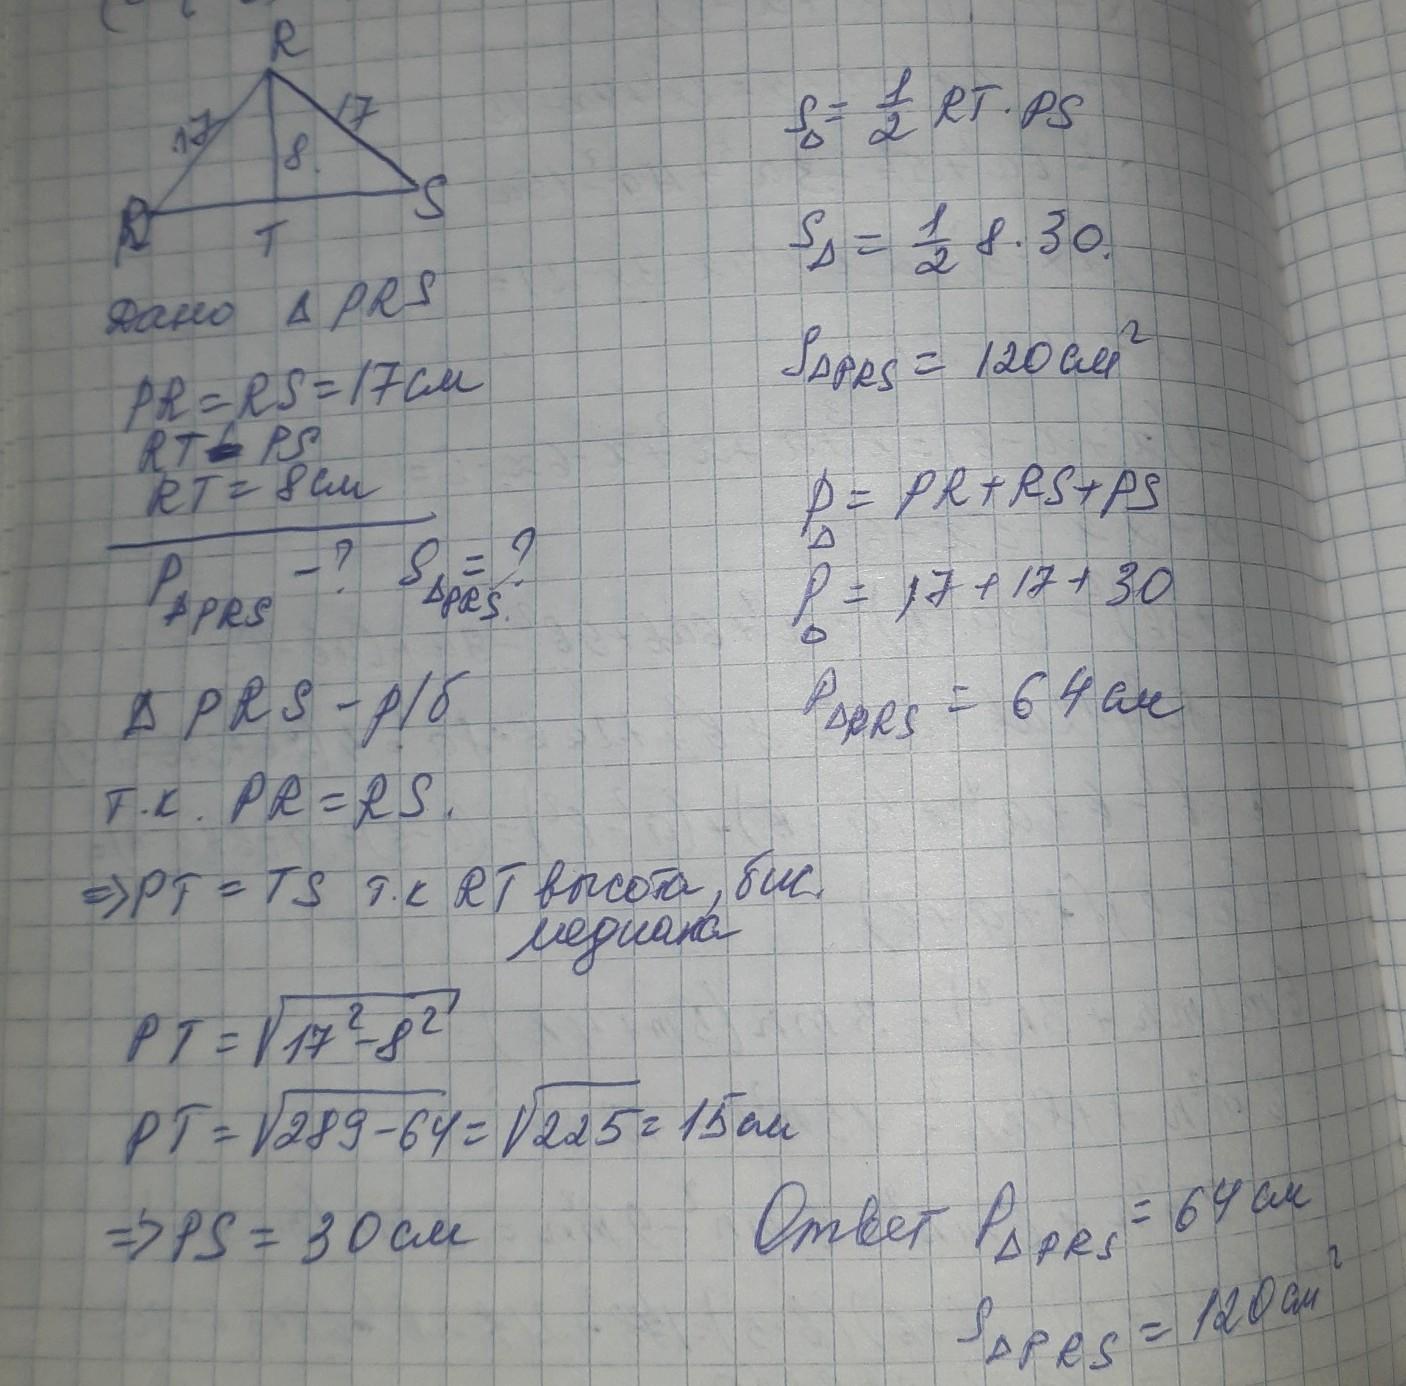 R
17
17
8.
P
T
S
Дано Δ PRS
PR = RS = 17 см
RT ⊥ PS
RT = 8 см
P ΔPRS -? S ΔPRS = ?
Δ PRS - р/б
т.к. PR = RS.
=> PT = TS т.к RT высота, бис.
медиана
PT = √17² - 8²
PT = √289 - 64 = √225 = 15 см
=> PS = 30 см
SΔ = 1/2 RT · PS
SΔ = 1/2 8 · 30.
SΔPRS = 120 см²
PΔ = PR + RS + PS
PΔ = 17 + 17 + 30
PΔPRS = 64 см
Ответ PΔPRS = 64 см
SΔPRS = 120 см²